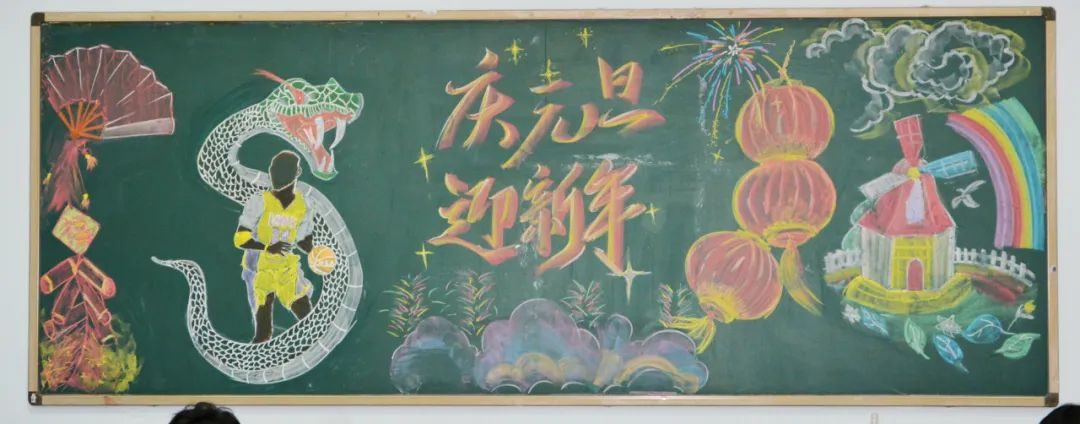 庆元旦
迎新年